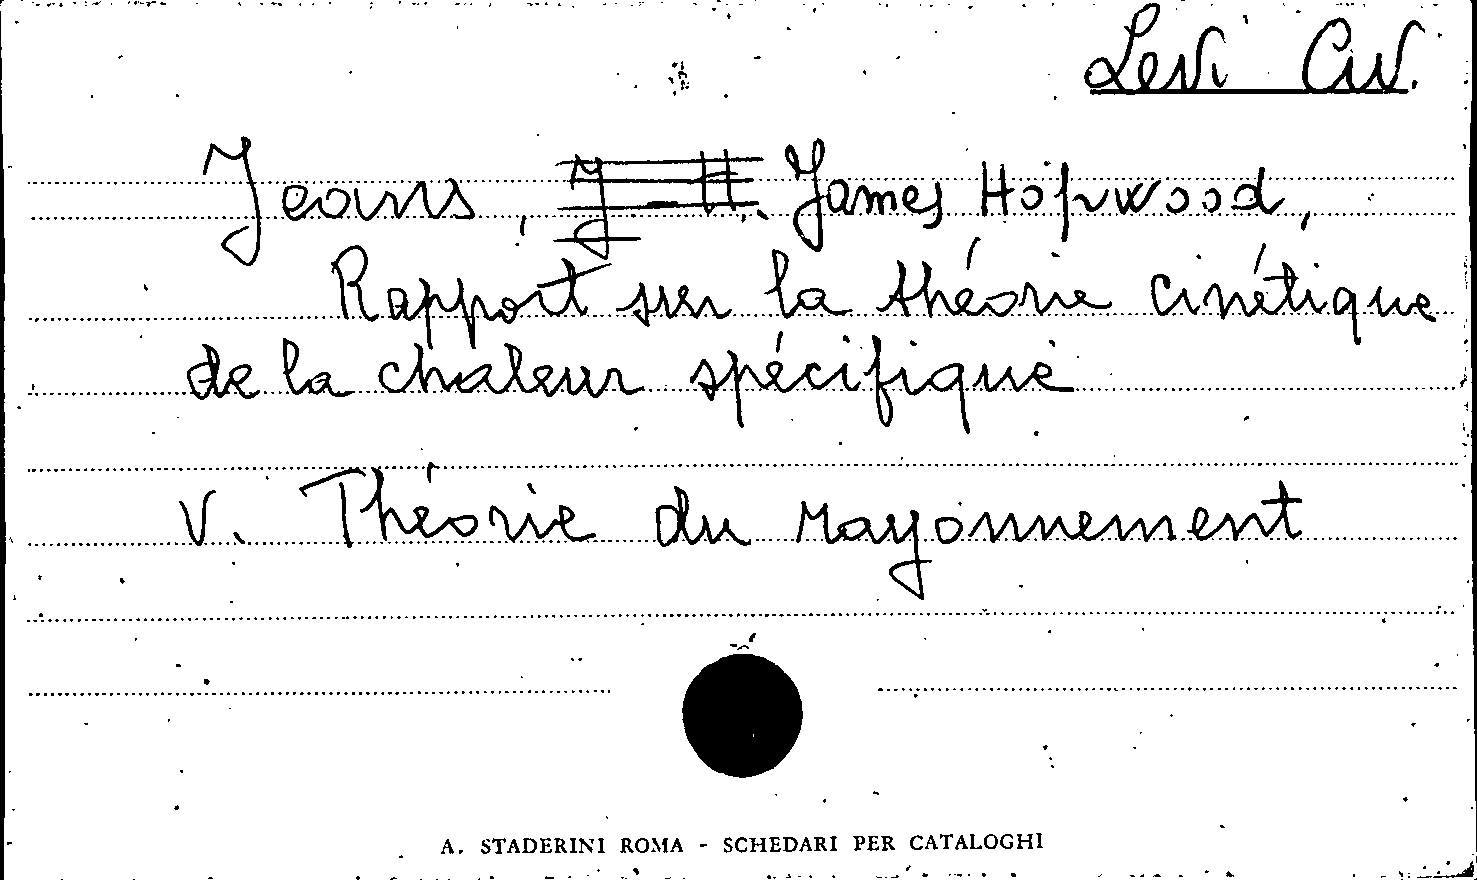 Levi Civ.
Jeans, J. H. James Hopwood,
Rapport sur la théorie cinétique
de la chaleur spécifique
V. Théorie du rayonnement
A. STADERINI ROMA - SCHEDARI PER CATALOGHI